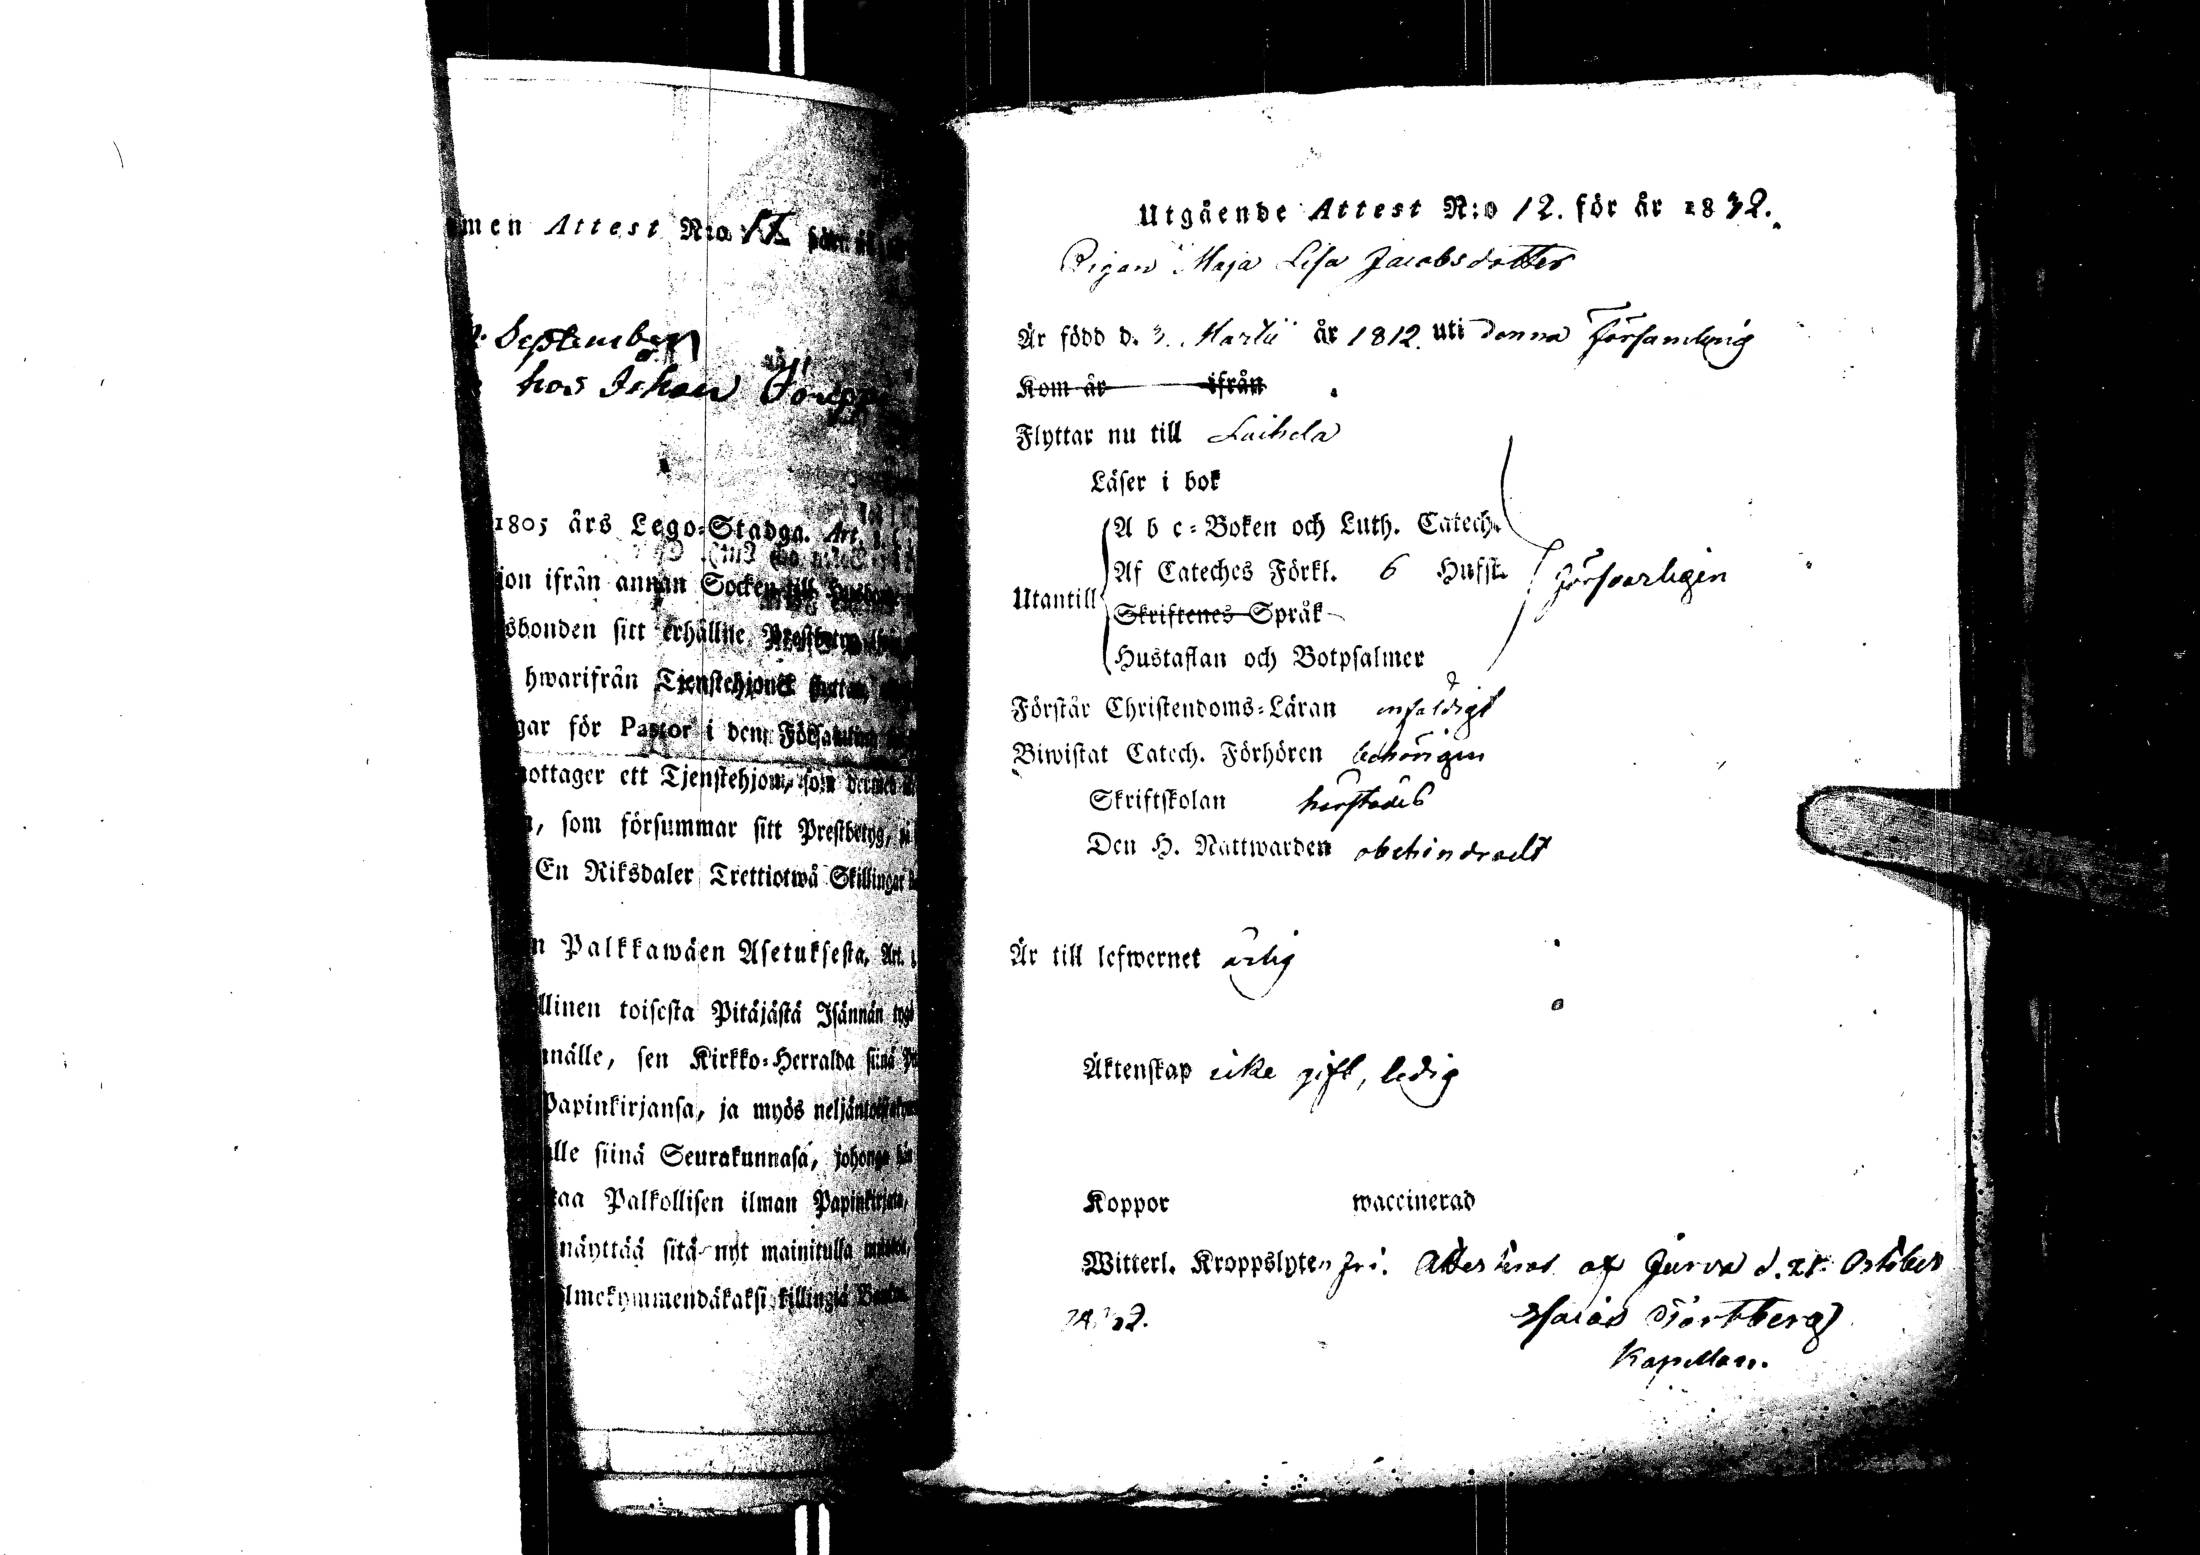 men Attest N:o
September
hos Johan
1805 års Lego-Stadga. Art.
ion ifrån annan Socken till
sbonden sitt erhållne
hwarifrån Tjenstehjonet
gar för Pastor i den Församling
ottager ett Tjenstehjon, som
, som försummar sitt Prestbetyg,
En Riksdaler Trettiotwå Skillingar
n Palkkawäen Asetuksesta, Art.
llinen toisesta Pitäjästä Isännän
nälle, sen Kirkko-Herralda siinä
Papinkirjansa, ja myös
lle siinä Seurakunnasa, johonga
taa Palkollisen ilman Papinkirjata,
näyttää sitä nyt mainitulla
lmekymmendäkaksi killingiä
Utgående Attest N:o 12. för år 1832.
Pigan Maja Lisa Jacobsdotter
Är född d. 3. Martii år 1812. uti denna Församling
Kom år ifrån
Flyttar nu till Laihela
Läser i bok
A b c-Boken och Luth. Catech.
Af Cateches Förkl. 6 Hufst.
Utantill försvarligen
Skriftenes Språk
Hustaflan och Botpsalmer
Förstår Christendoms-Läran enfaldigt
Biwistat Catech. Förhören behörigen
Skriftskolan härstädes
Den H. Nattwarden obehindradt
Är till lefwernet ärlig
Äktenskap icke gift, ledig
Koppor waccinerad
Witterl. Kroppslyten fri. Attesteras af Jurva d. October
1832.
Kapellan.